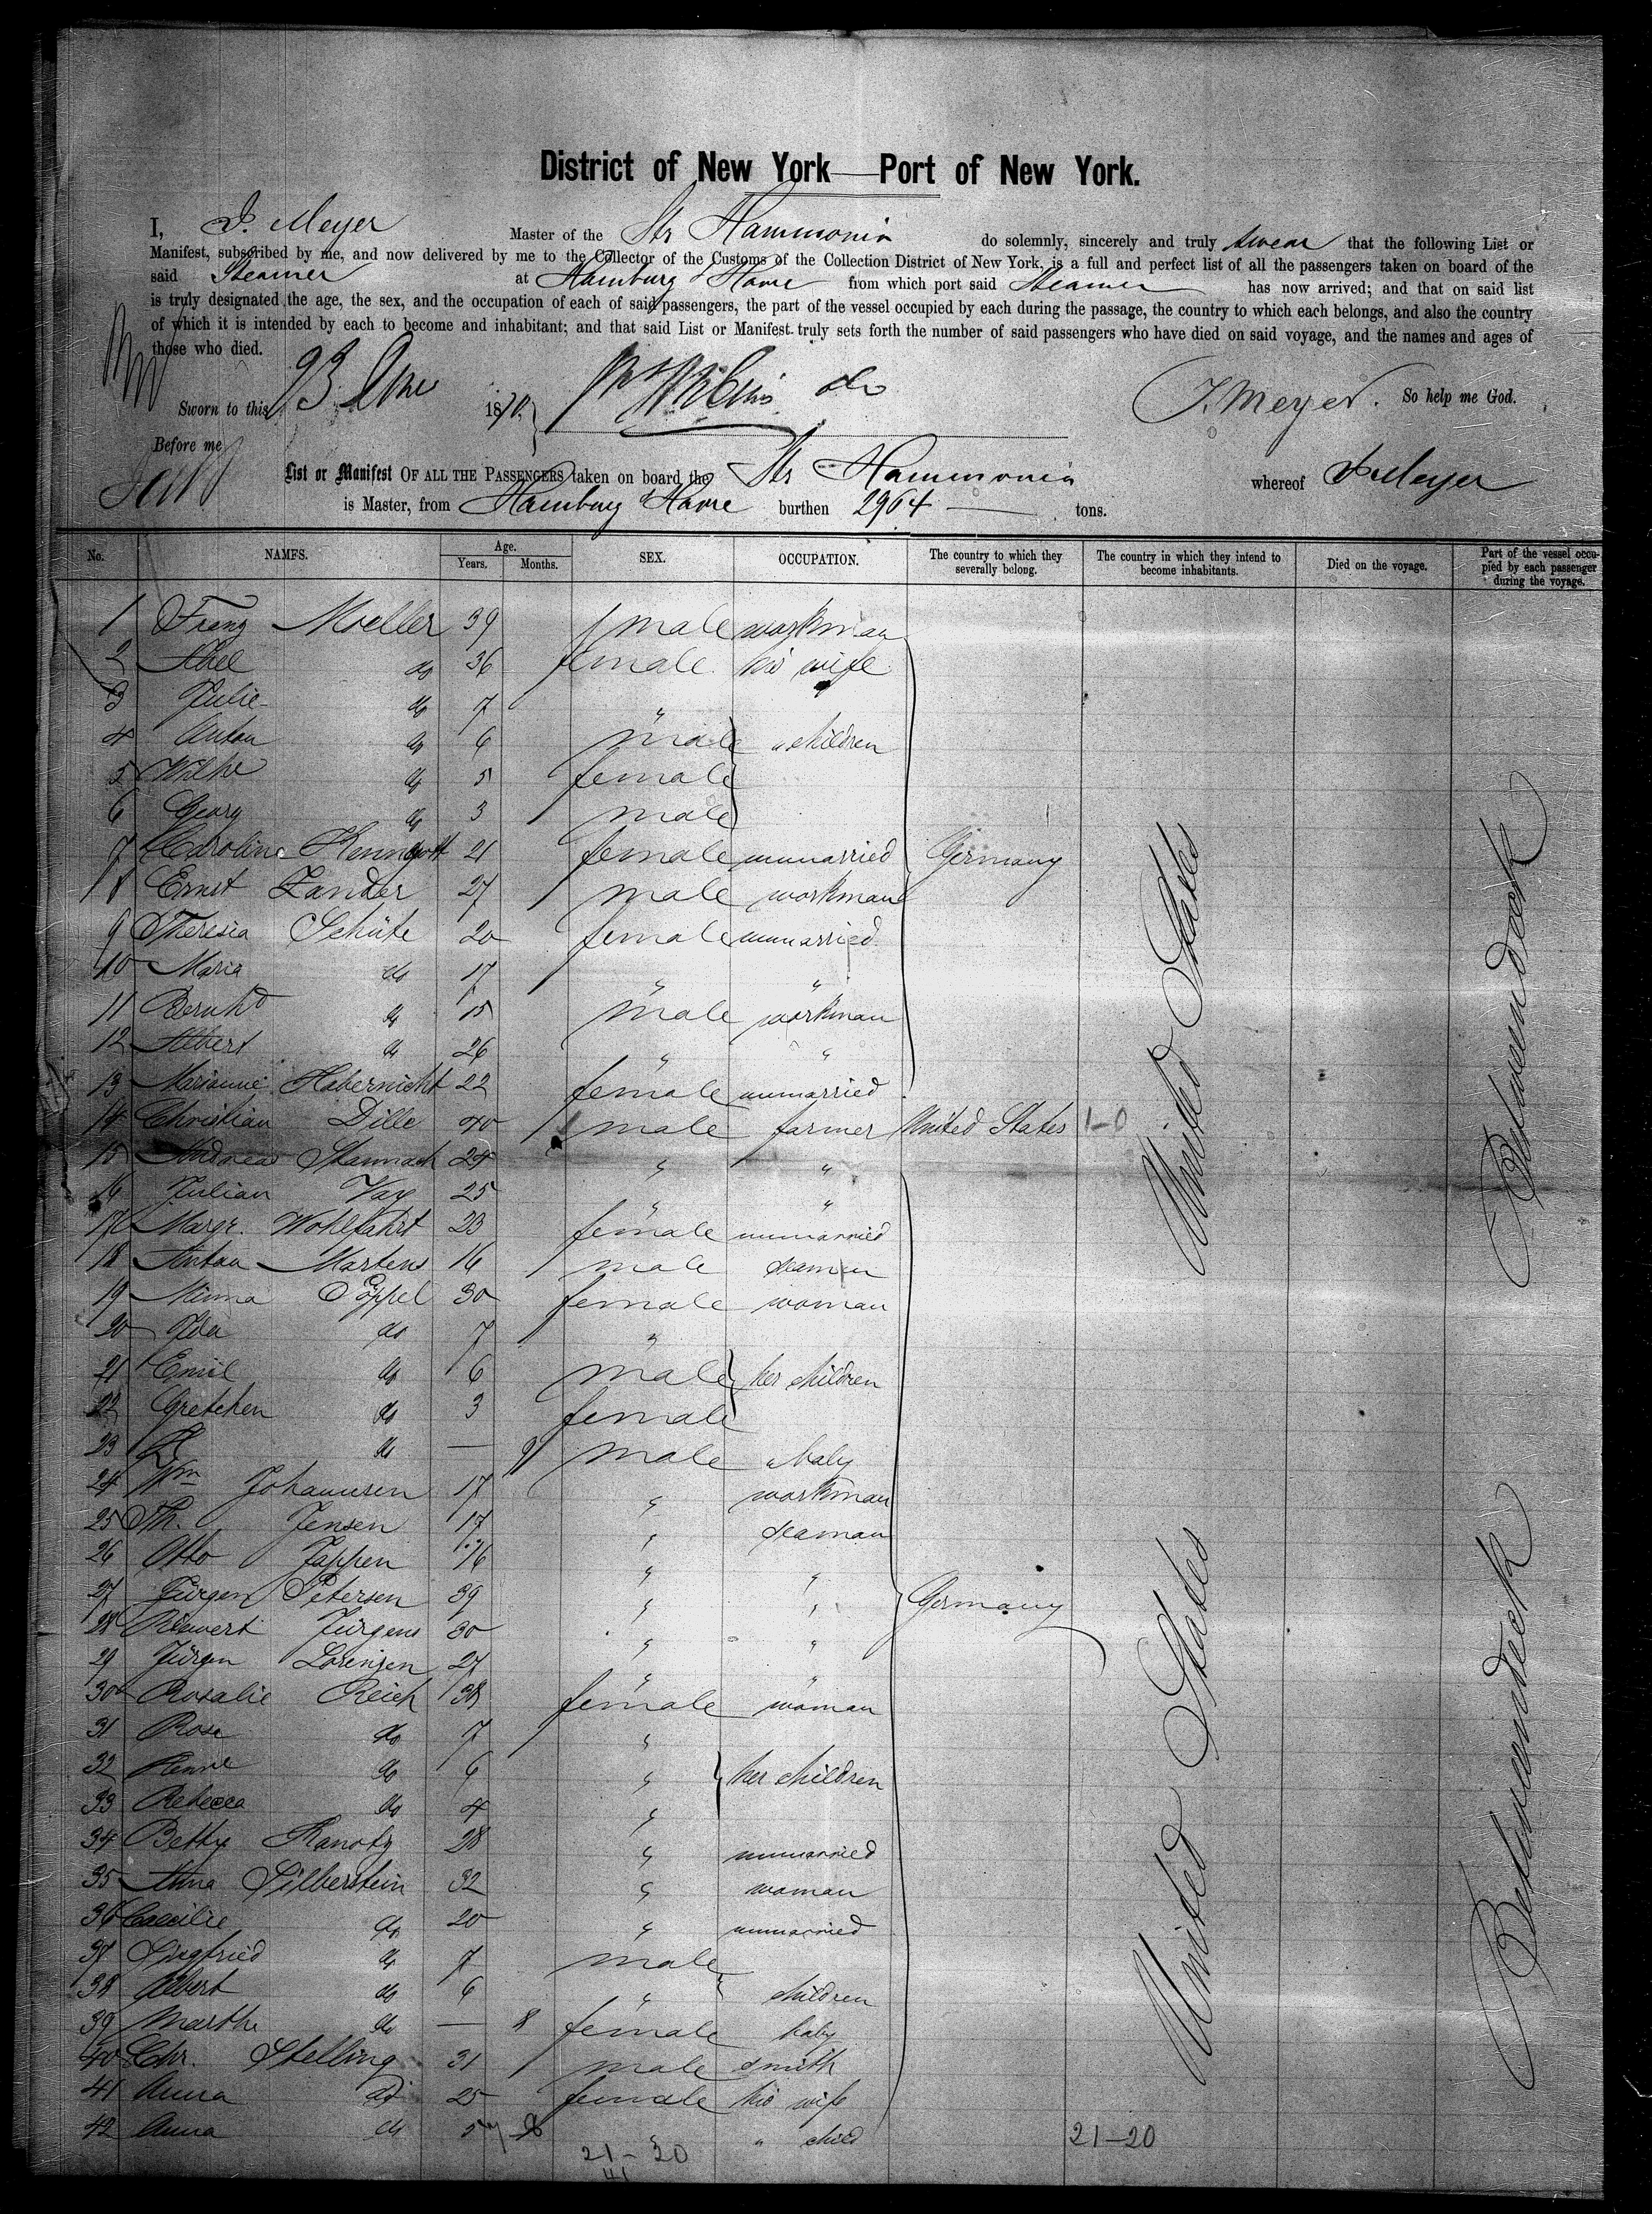 District of New York — Port of New York.
I, J. Meyer Master of the Str Hammonia do solemnly, sincerely and truly swear that the following List or
Manifest, subscribed by me, and now delivered by me to the Collector of the Customs of the Collection District of New York, is a full and perfect list of all the passengers taken on board of the
said Steamer at Hamburg & Havre from which port said Steamer has now arrived; and that on said list
is truly designated the age, the sex, and the occupation of each of said passengers, the part of the vessel occupied by each during the passage, the country to which each belongs, and also the country
of which it is intended by each to become and inhabitant; and that said List or Manifest truly sets forth the number of said passengers who have died on said voyage, and the names and ages of
those who died.
Sworn to this 23 1870. J. Meyer. So help me God.
Before me
List or Manifest OF ALL THE PASSENGERS taken on board the Str Hammonia whereof J. Meyer
is Master, from Hamburg & Havre burthen 2964 — tons.
No. NAMES. Age. Years. Months. SEX. OCCUPATION. The country to which they severally belong. The country in which they intend to become inhabitants. Died on the voyage. Part of the vessel occupied by each passenger during the voyage.
1 Franz Moeller 39 male workman
2 Abel do 36 female his wife
3 Julie do 7 "
4 Anton do 6 male " children
5 Wilhe do 5 female
6 Georg do 3 male
7 Caroline Kenngott 21 female unmarried Germany
8 Ernst Zander 27 male workman
9 Theresia Schüte 20 female unmarried
10 Maria do 17 " "
11 Bernhd do 15 male workman
12 Albert do 26 " "
13 Marianne Habernicht 22 female unmarried
14 Christian Dille 40 male farmer United States 1-0
15 Andreas Stannach 24 " "
16 Julian Vax 25 " "
17 Margr. Wohlfahrt 23 female unmarried
18 Anton Martens 16 male seaman
19 Minna Poppel 30 female woman
20 Ida do 7 "
21 Emil do 6 male her children
22 Gretchen do 3 female
23 do — 9 male " baby
24 Wm Johannsen 17 " workman
25 Th. Jensen 17 " seaman
26 Otto Jappen 16 " "
27 Jürgen Petersen 39 " " Germany
28 Rewert Jürgens 30 " "
29 Jürgen Lorenzen 27 " "
30 Rosalie Reich 38 female woman
31 Rosa do 7 "
32 do 6 " her children
33 Rebecca do 4 "
34 Betty 28 " unmarried
35 Anna Silberstein 32 " woman
36 Caecilie do 20 " unmarried
37 Siegfried do 7 male
38 Albert do 6 " children
39 Marthe do — 8 female baby
40 Chr. Stelling 31 male smith
41 Anna do 25 female his wife
42 Anna do " " child
21-20
21-20
41
United States
United States
Betweendeck
Betweendeck